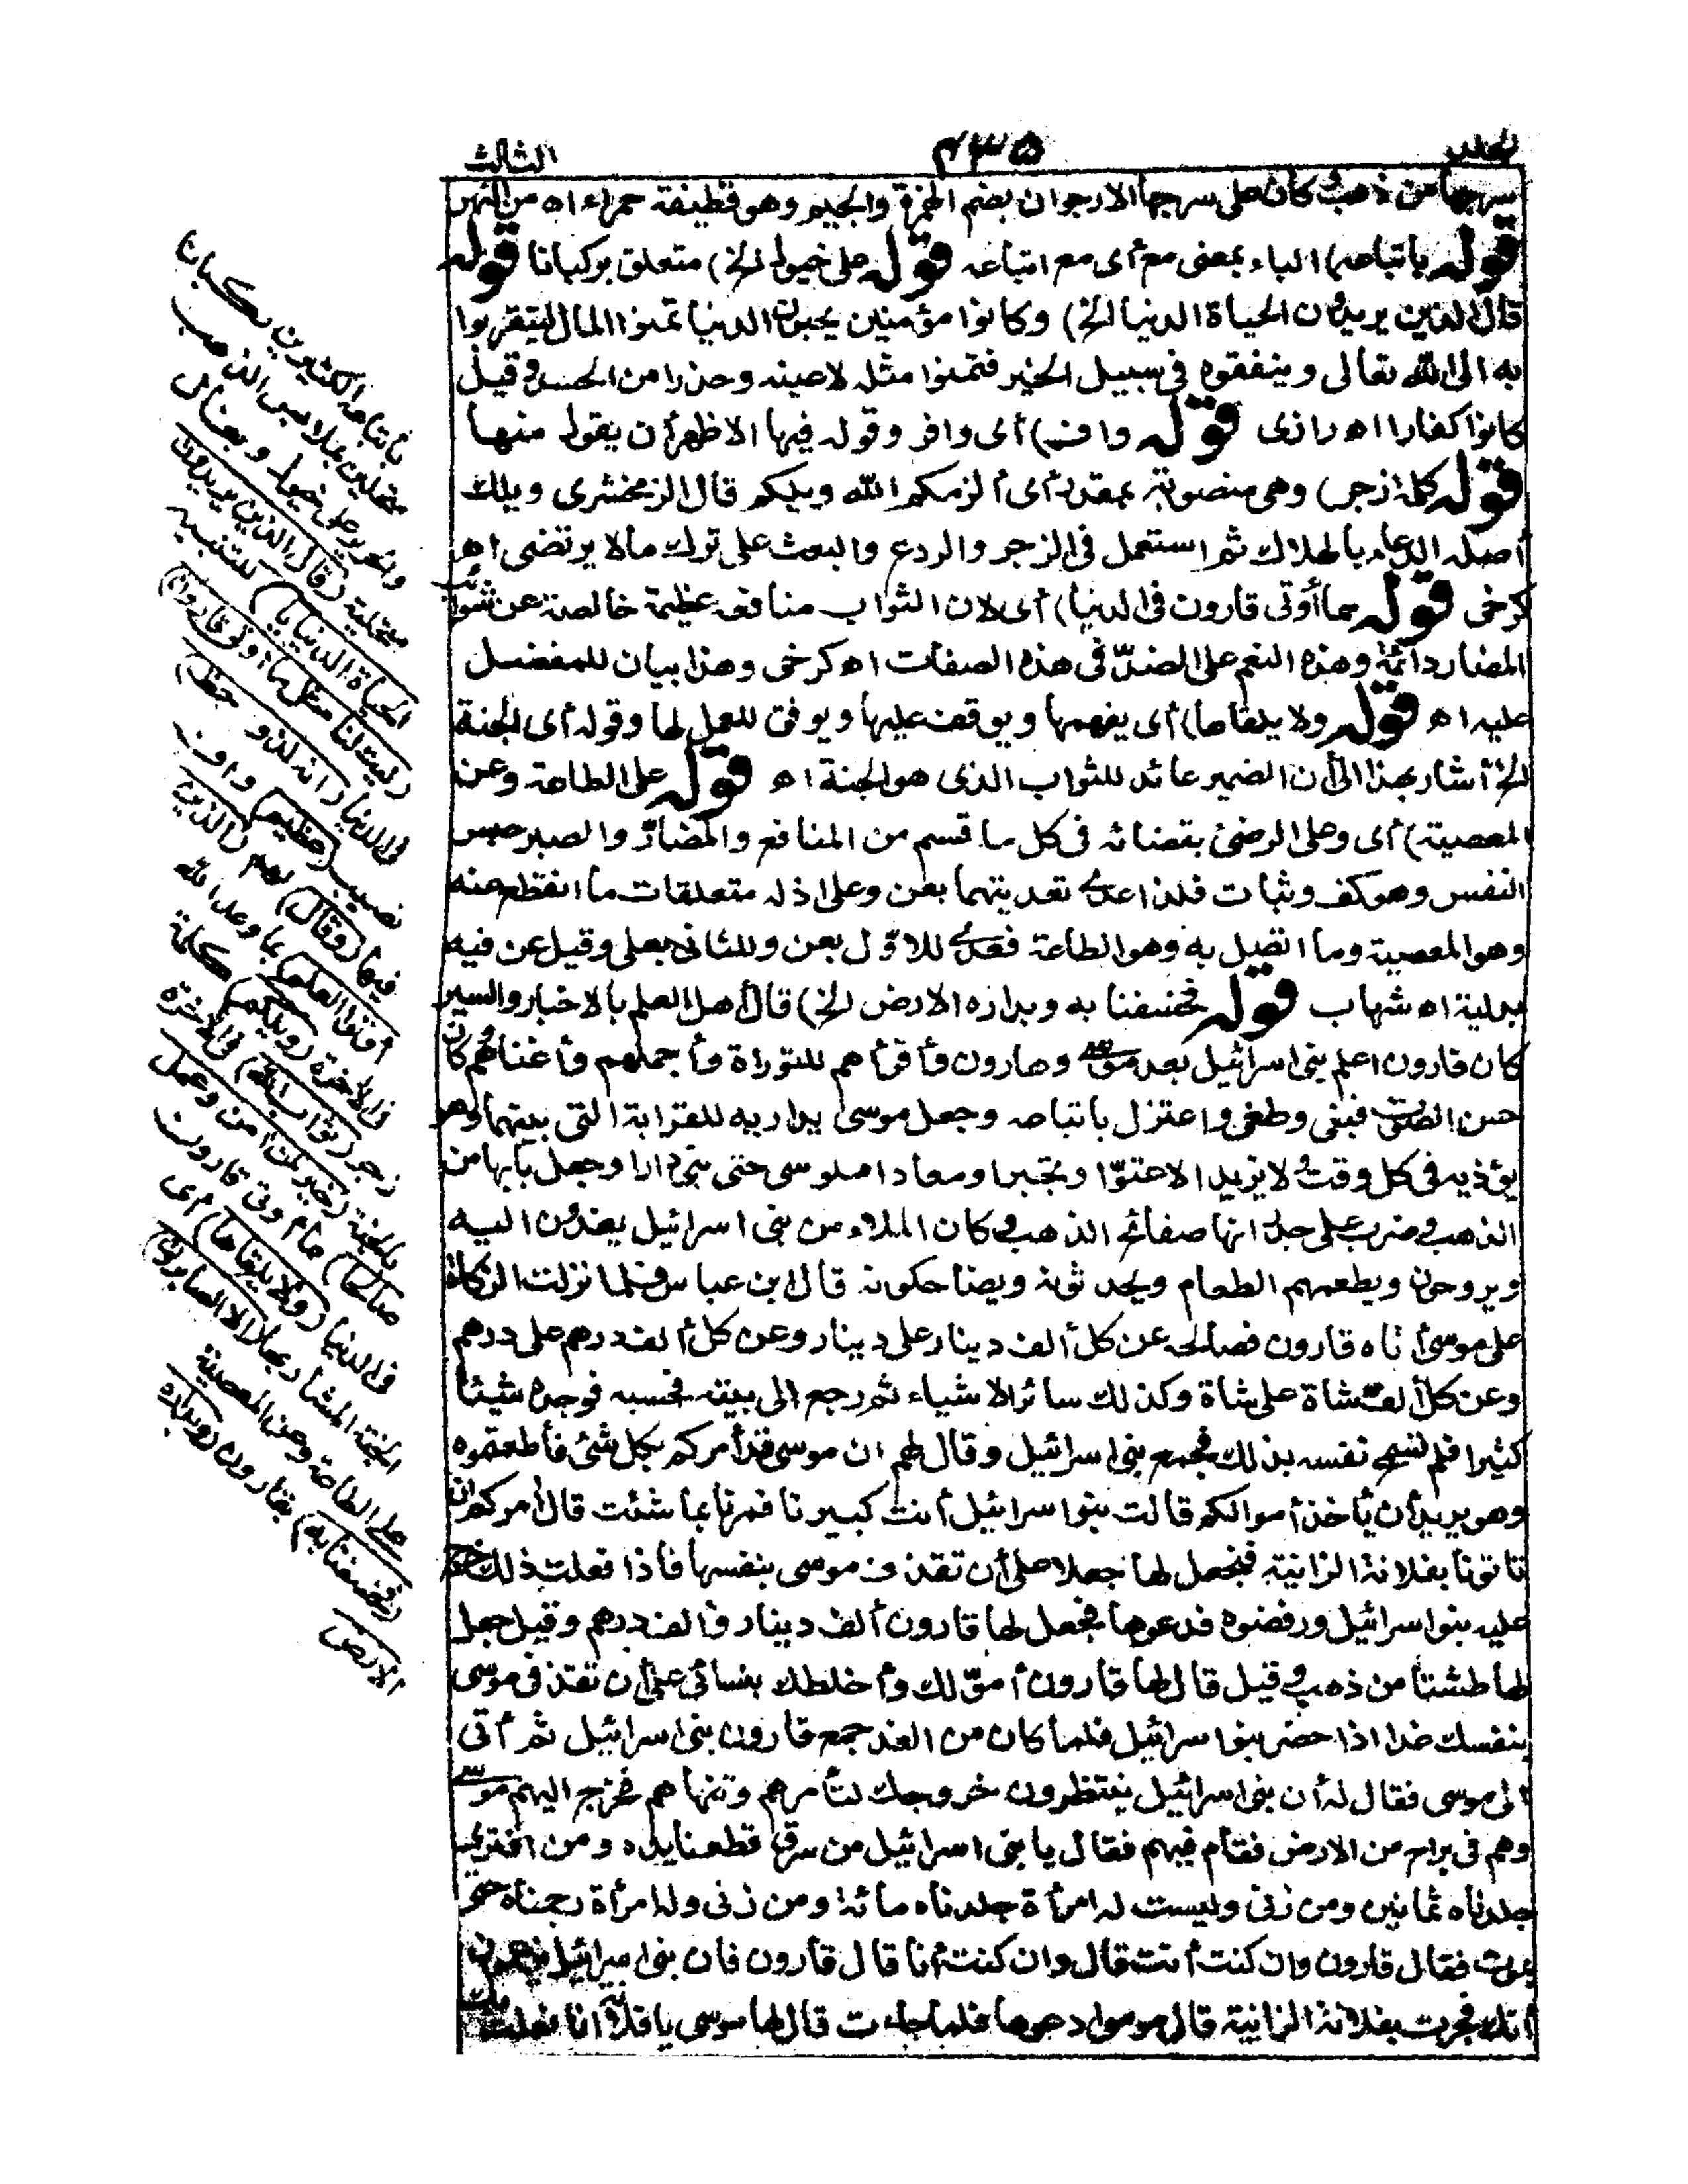 المجلد ٤٣٥ الثالث
سرجها من ذهب كان على سرجها الارجوان بضم الهمزة والجيم وهو قطيفة حمراء اه من النهر
قوله باتباعه) الباء بمعنى مع أى مع اتباعه قوله على خيول الخ) متعلق بركبانا قوله
قال الذين يريدون الحياة الدنيا الخ) وكانوا مؤمنين يحبون الدنيا تمنوا المال ليتقربوا
به الى الله تعالى وينفقوه فى سبيل الخير فتمنوا مثله لاعينه وحذرا من الحسد وقيل
كانوا كفارا اه رازى قوله واف) أى وافر وقوله فيها الاظهر أن يقول منها
قوله كلمة زجر) وهى منصوبة بمقدر أى ألزمكم الله ويلكم قال الزمخشرى ويلك
أصله الدعاء بالهلاك ثم استعمل فى الزجر والردع والبعث على ترك مالا يرتضى اه
كرخى قوله مما أوتى قارون فى الدنيا) أى لان الثواب منافعه عظيمة خالصة عن شوائب
المضار دائمة وهذه النعم على الضدّ فى هذه الصفات اه كرخى وهذا بيان للمفضل
عليه اه قوله ولا يلقاها) أى يفهمها ويوقف عليها ويوفق للعمل لها وقوله أى الجنة
الخ أشار بهذا الى أن الضمير عائد للثواب الذى هو الجنة اه قوله على الطاعة وعن
المعصية) أى وعلى الرضى بقضائه فى كل ما قسم من المنافع والمضارّ والصبر حبس
النفس وهو كف وثبات فلذا عدى تعديتهما بعن وعلى اذ له متعلقات ما انقطع عنه
وهو المعصية وما اتصل به وهو الطاعة فعدى للاوّل بعن وللثانى بعلى وقيل عن فيه
بدلية اه شهاب قوله فخسفنا به وبداره الارض الخ) قال أهل العلم بالاخبار والسير
كان قارون اعلم بنى اسرائيل بعد موسى وهارون وأقرأهم للتوراة وأجملهم وأغناهم وكان
حسن الصوت فبغى وطغى واعتزل باتباعه وجعل موسى يداريه للقرابة التى بينهما وهو
يؤذيه فى كل وقت ولا يزيد الا عتوّا وتجبرا ومعاداة لموسى حتى بنى دارا وجعل بابها من
الذهب وضرب على جدرانها صفائح الذهب وكان الملاء من بنى اسرائيل يغدون اليه
ويروحون ويطعمهم الطعام ويحدثونه ويضاحكونه قال ابن عباس فلما نزلت الزكاة
على موسى أتاه قارون فصالحه عن كل ألف دينار على دينار وعن كل ألف درهم على درهم
وعن كل ألف شاة على شاة وكذلك سائر الاشياء ثم رجع الى بيته فحسبه فوجده شيئا
كثيرا فلم تسمح نفسه بذلك فجمع بنى اسرائيل وقال لهم ان موسى قد أمركم بكل شئ فأطعتموه
وهو يريد أن يأخذ أموالكم قالت بنوا اسرائيل أنت كبيرنا فمرنا بما شئت قال أمركم ان
تاتونا بفلانة الزانية فنجعل لها جعلا على أن تقذف موسى بنفسها فاذا فعلت ذلك خرج
عليه بنوا اسرائيل ورفضوه فدعوها فجعل لها قارون ألف دينار وألف درهم وقيل جعل
لها طشتا من ذهب وقيل قال لها قارون أموّلك وأخلطك بنسائى على أن تقذفى موسى
بنفسك غدا اذا حضر بنوا اسرائيل فلما كان من الغد جمع قارون بنى اسرائيل ثم أتى
الى موسى فقال له أن بنى اسرائيل ينتظرون خروجك لتأمرهم وتنهاهم فخرج اليهم موسى
وهم فى براح من الارض فقام فيهم فقال يا بنى اسرائيل من سرق قطعنا يده ومن افترى
جلدناه ثمانين ومن زنى وليست له امرأة جلدناه مائة ومن زنى وله امرأة رجمناه حتى
يموت فقال قارون وان كنت أنت قال وان كنت أنا قال قارون فان بنى اسرائيل يزعمون
أنك فجرت بفلانة الزانية قال موسى ادعوها فلما جاءت قال لها موسى يا فلانة أنا فعلت بك
بأتباعه الكثيرين ركبانا
متحلين بملابس الذهب
والحرير على خيول وبغال
متحلية (قال الذين يريدون
الحياة الدنيا يا) للتنبيه
(ليت لنا مثل ما اوتى قارون)
فى الدنيا (انه لذو حظ)
نصيب (عظيم) واف
فيها (وقال) لهم (الذين
أوتوا العلم) بما وعد الله
فى الآخرة (ويلكم) كلمة
زجر (ثواب الله) فى الآخرة
بالجنة (خير لمن آمن وعمل
صالحا) مما أوتى قارون
فى الدنيا (ولا يلقاها) أى
الجنة المثاب بها (الا الصابرون)
على الطاعة وعن المعصية
(فخسفنا به) بقارون (وبداره
الارض